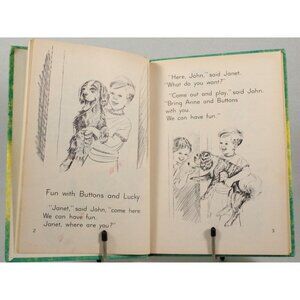 Fun with Buttons and Lucky
"Janet," said John, "come here.
We can have fun.
Janet, where are you?"
2
"Here, John," said Janet.
"What do you want?"
"Come out and play," said John.
"Bring Anne and Buttons
with you.
We can have fun."
3